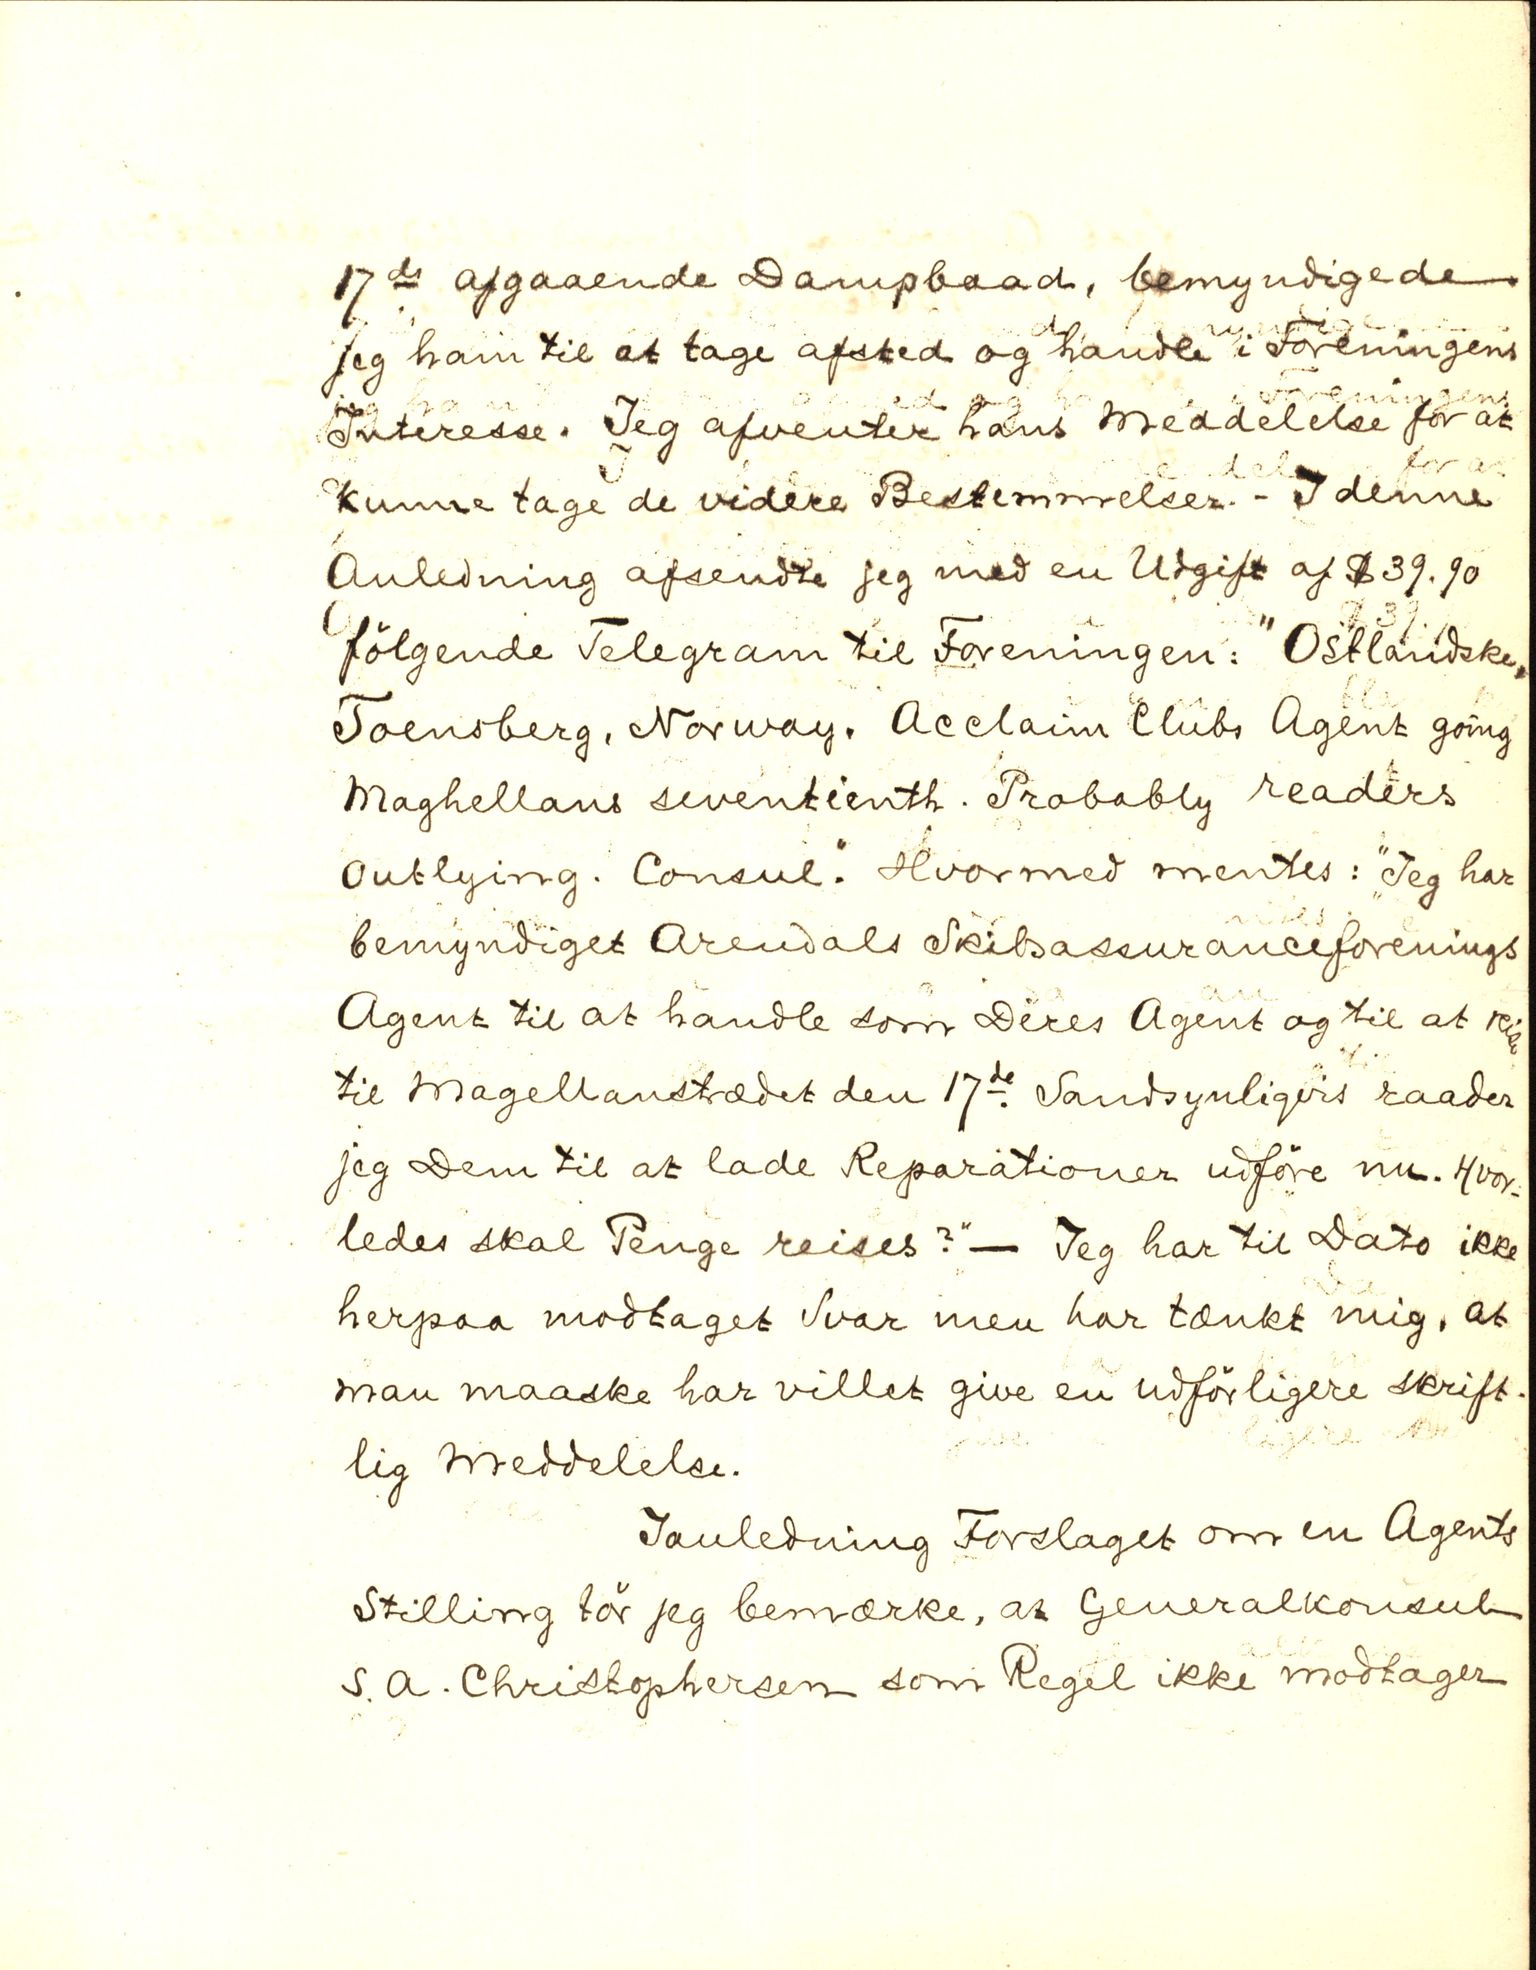 17ds afgaaende Dampbaad, bemyndigede
jeg ham til at tage afsted og handle i Foreningens
Interesse. Jeg afventer hans Meddelelse for at
kunne tage de videre Bestemmelser. - I denne
Anledning afsendte jeg med en Udgift af $39.90
fölgende Telegram til Foreningen: "Ostlandske,
Toensberg, Norway. Acclaim Clubs Agent going
Maghellans seventienth. Probably readers
outlying. Consul". Hvormed mentes: "Jeg har
bemyndiget Arendals Skibsassuranceforenings
Agent til at handle som Deres Agent og til at reise
til Magellanstrædet den 17de. Sandsynligvis raader
jeg Dem til at lade Reparationer udföre nu. Hvor-
ledes skal Penge reises?" — Jeg har til Dato ikke
herpaa modtaget Svar men har tænkt mig, at
man maaske har villet give en udförligere skrift-
lig Meddelelse.
Ianledning Forslaget om en Agents
Stilling tör jeg bemærke, at Generalkonsul
S. A. Christophersen som Regel ikke modtager